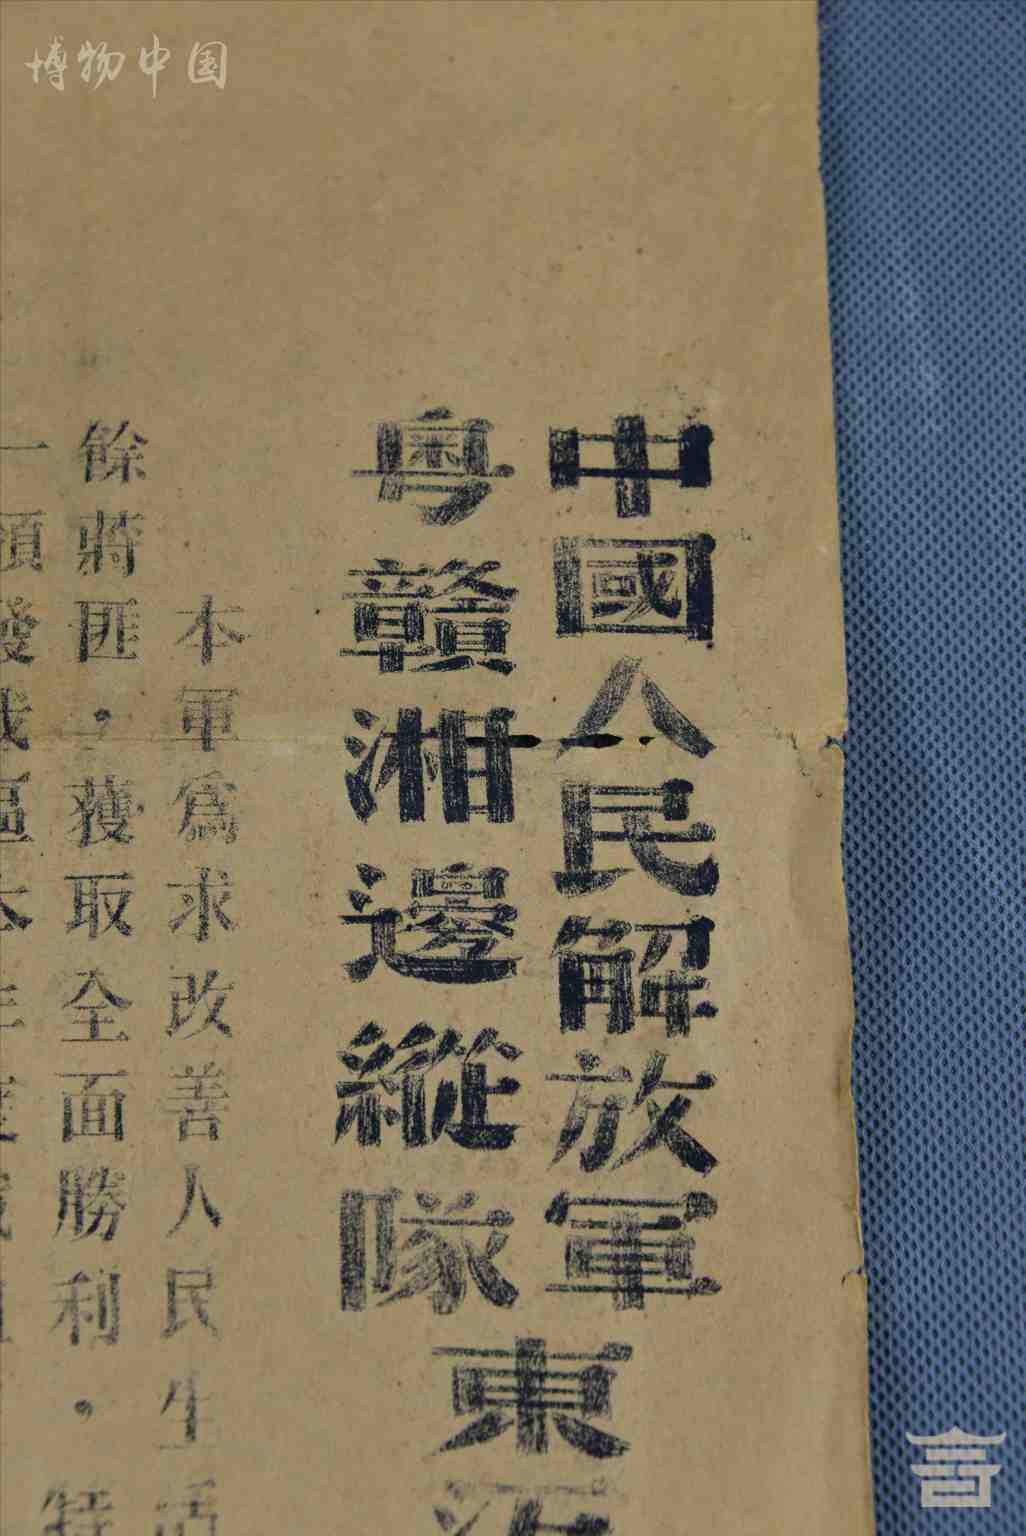 博物中国
中國人民解放軍
粤贛湘邊縱隊
東
本軍爲求改善人民生活
餘蔣匪，獲取全面勝利，特
一項發